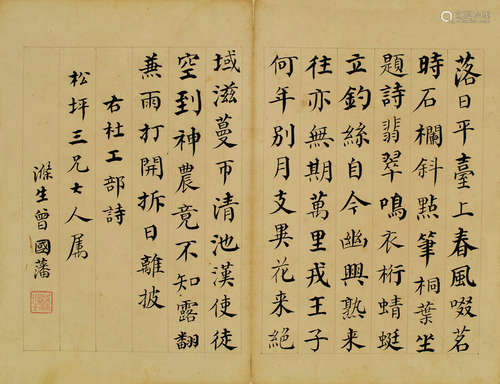 落日平臺上春風啜茗
時石欄斜點筆桐葉坐
題詩翡翠鳴衣桁蜻蜓
立釣絲自今幽興熟来
往亦無期萬里戎王子
何年別月支異花来絕
域滋蔓帀清池漢使徒
空到神農竟不知露翻
蕪雨打開拆日離披
右杜工部詩
松坪三兄大人属
滌生曾國藩